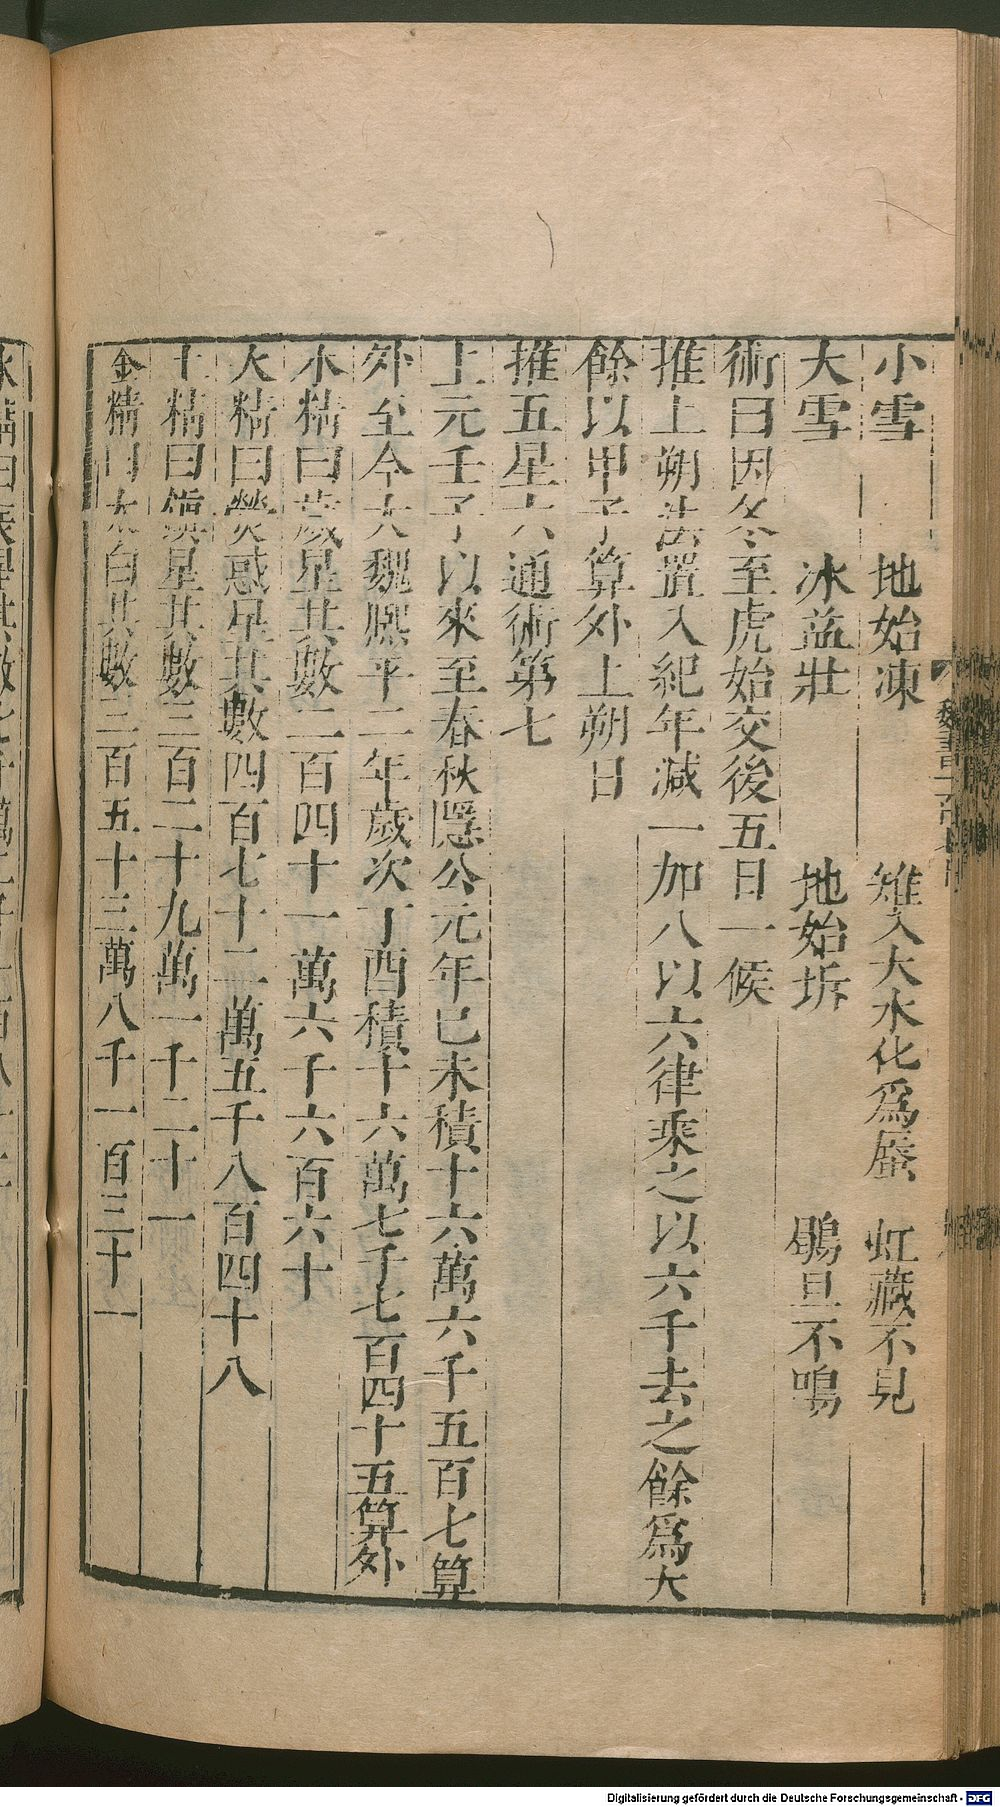 小雪　地始凍　雉入大水化為蜃　虹藏不見
大雪　冰益壯　地始坼　鶡旦不鳴
術曰因冬至虎始交後五日一候
推上朔法置入紀年減一加八以六律乘之以六千去之餘為大
餘以甲子算外上朔日
推五星六通術第七
上元壬子以來至春秋隱公元年已未積十六萬六千五百七算
外至今大魏熙平二年歲次丁酉積十六萬七千七百四十五算外
木精曰歲星其數二百四十一萬六千六百六十
火精曰熒惑星其數四百七十二萬五千八百四十八
土精曰鎮星其數三百二十九萬一千二十一
金精曰太白其數三百五十三萬八千一百三十一
Digitalisierung gefördert durch die Deutsche Forschungsgemeinschaft - DFG